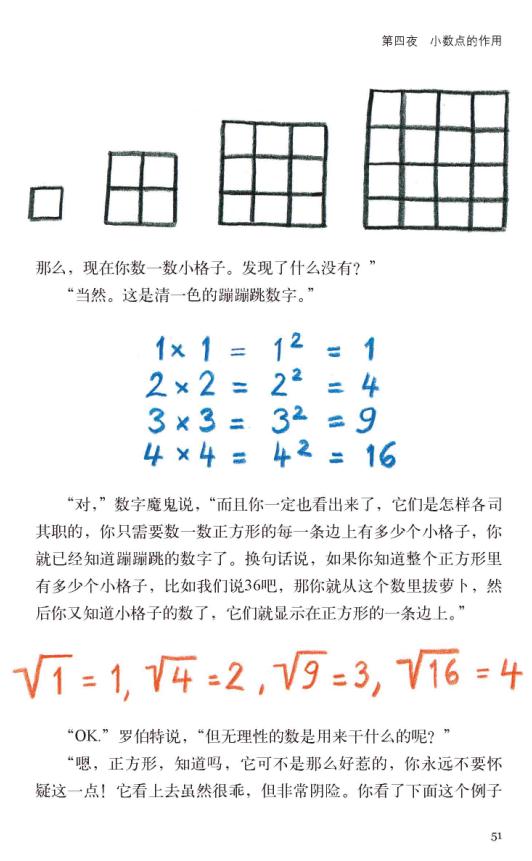 第四夜 小数点的作用
那么，现在你数一数小格子。发现了什么没有？”
“当然。这是清一色的蹦蹦跳数字。”
1×1 = 1² = 1
2×2 = 2² = 4
3×3 = 3² = 9
4×4 = 4² = 16
“对，”数字魔鬼说，“而且你一定也看出来了，它们是怎样各司
其职的，你只需要数一数正方形的每一条边上有多少个小格子，你
就已经知道蹦蹦跳的数字了。换句话说，如果你知道整个正方形里
有多少个小格子，比如我们说36吧，那你就从这个数里拔萝卜，然
后你又知道小格子的数了，它们就显示在正方形的一条边上。”
√1 = 1, √4 = 2, √9 = 3, √16 = 4
“OK.”罗伯特说，“但无理性的数是用来干什么的呢？”
“嗯，正方形，知道吗，它可不是那么好惹的，你永远不要怀
疑这一点！它看上去虽然很乖，但非常阴险。你看了下面这个例子
51